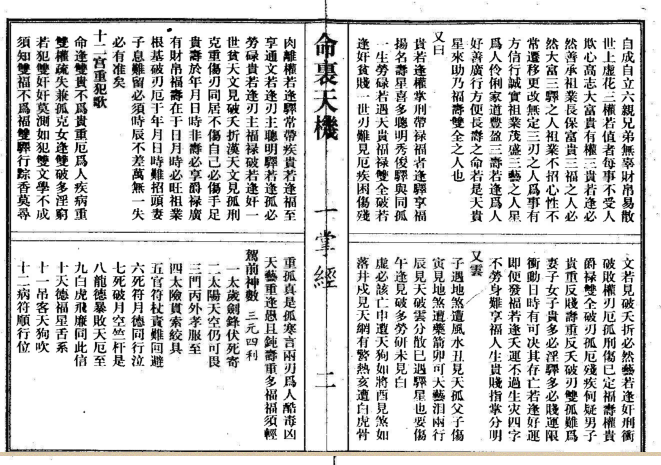 自成自立六親兄弟無辜財帛易散
世上虛花二權若值者每事不受人
欺心高志大富貴有權三貴若逢必
然善承祖業長保富貴三福之人必
然大富三驛之人祖業不招心性不
常遷移更改無定三刃之人爲事有
方信行誠實祖業茂盛三藝之人星
爲人伶俐家道豊盈三壽若逢人
好善廣行方便長壽之命若是天貴
星來助乃福壽雙全之人也
又曰
貴若逢權掌刑帶祿福者逢驛享福
揚名壽星喜多聰明秀俊驛與同孤
一生勞碌若遇天貴福祿雙全破若
逢奸貧賤一世刃難見厄疾困傷殘
文若見破夭折必然藝若逢奸刑衝
破敗權刃厄刑傷已定福壽權貴
爵祿雙全破刃孤厄殘疾何疑男子
貴重反賤壽重反夭破刃雙孤難爲
妻子女子貴多必淫驛多必賤運限
衝動日時有可決其存亡若逢好運
即便發福若逢夭運不過生灾四字
不勞身難享福人生貴賤指掌分明
又雲
子遇地煞遭風水丑見天孤父子傷
寅見地煞遭藥箭卯可天藝泪兩行
辰見天破雲分散巳遇驛星也要傷
午逢見破多勞研未見白
虛必該亡申遭天狗如將酉見煞如
落井戍見天網有驚熱亥遭白虎骨
命裏天機 一掌經 二
肉離權若逢驛常帶疾貴若逢福至
享通文若逢刃主聰明驛若逢孤必
勞碌貴若逢刃主福祿破若逢奸一
世貧天文見破夭折漢天文見孤刑
克重傷刃同居不傷自己必傷手足
貴壽於年月日時非壽必享爵祿廣
有財帛福壽在于日月時必旺祖業
根基破刃厄于年月日時難招頭妻
子息難留必須時辰不差萬無一失
必有准矣
十二宮重犯歌
命逢雙貴不爲貴重厄爲人疾病重
雙權疏失兼孤克女逢雙破多淫窮
若犯雙奸奸莫測如犯雙文學不成
須知雙福不爲福雙驛行踪莫尋
重孤真是孤寒言兩刃爲人酷毒凶
天藝重逢愚且鈍壽重多福福須輕
駕前神數 三元四利
一太歲劍鋒伏死寄
二太陽天空仍可畏
三門丙外孝服至
四太險貫索絞具
五官符杖責難回避
六死符月德同行泣
七死破月空竺杆是
八龍德暴敗天厄至
九白虎飛廉同此信
十天德福星舌系
十一吊客天狗吹
十二病符順行位